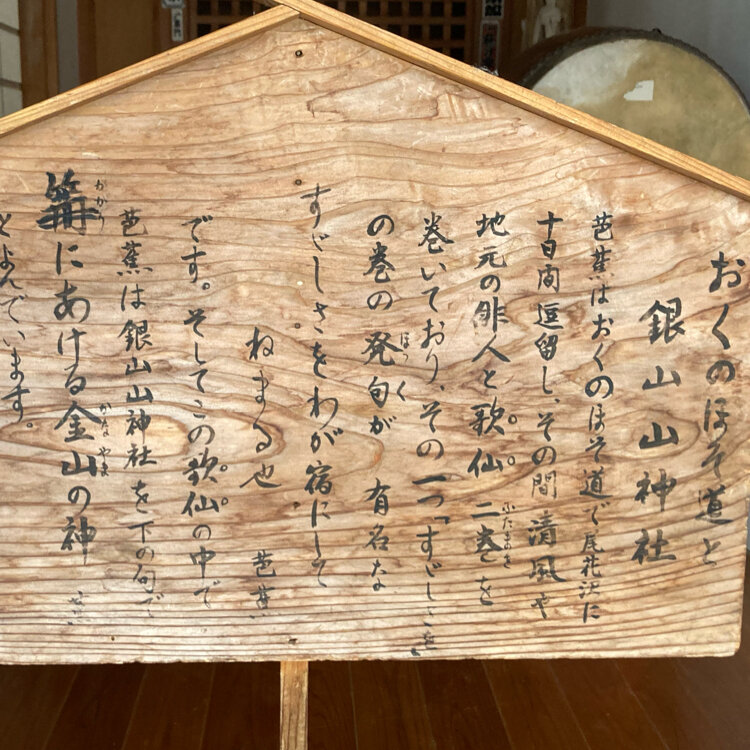 おくのほそ道と
銀山山神社
芭蕉はおくのほそ道で尾花沢に
十日間逗留し、その間清風や
ふたまき
地元の俳人と歌仙二巻を
巻いており、その一つ「すゞしさを」
ほっく
の巻の発句が有名な
すゞしさをわが宿にして
ねまる也 芭蕉
です。そしてこの歌仙の中で
芭蕉は銀山山神社を下の句で
かなやま
篝にあける金山の神 蕉
とよんでいます。